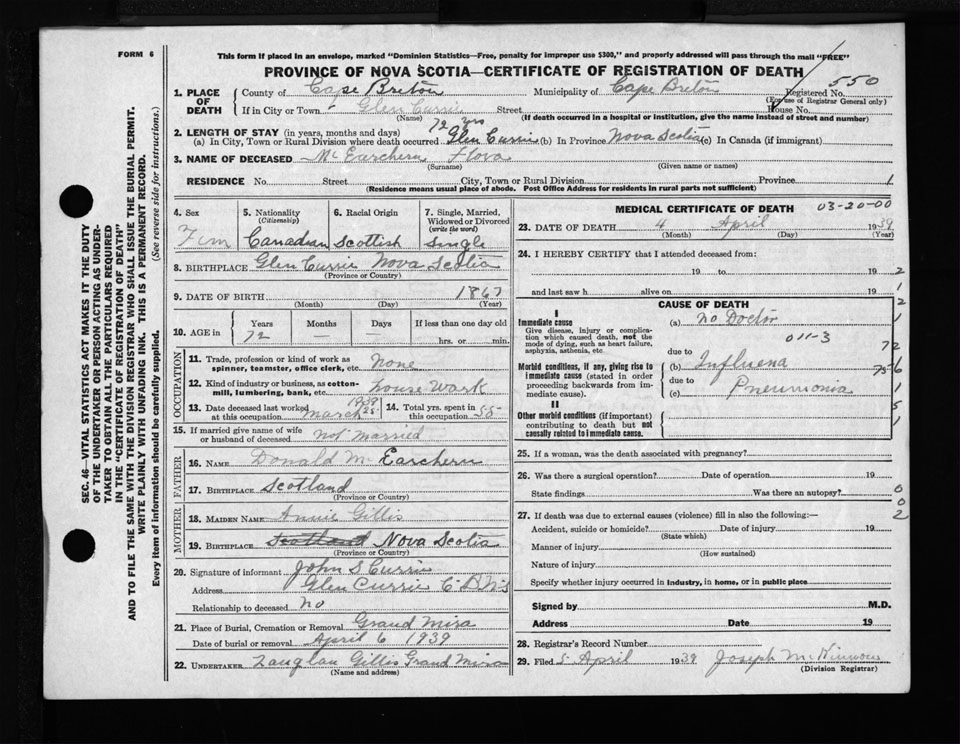 FORM 6
This form if placed in an envelope, marked "Dominion Statistics—Free, penalty for improper use $300," and properly addressed will pass through the mail "FREE"
PROVINCE OF NOVA SCOTIA—CERTIFICATE OF REGISTRATION OF DEATH
550
1. PLACE OF DEATH County of Cape Breton Municipality of Cape Breton Registered No.
(For use of Registrar General only)
If in City or Town Glen Currie Street House No.
(Name) (If death occurred in a hospital or institution, give the name instead of street and number)
2. LENGTH OF STAY (in years, months and days) 72 yrs
(a) In City, Town or Rural Division where death occurred Glen Currie (b) In Province Nova Scotia (c) In Canada (if immigrant)
3. NAME OF DECEASED McEarchern Flova
(Surname) (Given name or names)
RESIDENCE No. Street City, Town or Rural Division Province 1
(Residence means usual place of abode. Post Office Address for residents in rural parts not sufficient)
4. Sex 5. Nationality (Citizenship) 6. Racial Origin 7. Single, Married, Widowed or Divorced (write the word)
Fem Canadian Scottish Single
8. BIRTHPLACE Glen Currie Nova Scotia
(Province or Country)
9. DATE OF BIRTH 1867
(Month) (Day) (Year)
10. AGE in Years Months Days If less than one day old
72 — — hrs. or min.
OCCUPATION
11. Trade, profession or kind of work as spinner, teamster, office clerk, etc. None
12. Kind of industry or business, as cotton-mill, lumbering, bank, etc. House Wark
13. Date deceased last worked at this occupation March 25 1939 14. Total yrs. spent in this occupation 55
15. If married give name of wife or husband of deceased Not Married
FATHER
16. NAME Donald Mc Earchern
17. BIRTHPLACE Scotland
(Province or Country)
MOTHER
18. MAIDEN NAME Annie Gillis
19. BIRTHPLACE Scotland Nova Scotia
(Province or Country)
20. Signature of informant John S Currie
Address Glen Currie C B N S
Relationship to deceased No
21. Place of Burial, Cremation or Removal Grand Mira
Date of burial or removal April 6 1939
22. UNDERTAKER Gillis Grand Mira
(Name and address)
MEDICAL CERTIFICATE OF DEATH 03-20-00
23. DATE OF DEATH 4 April 1939
(Month) (Day) (Year)
24. I HEREBY CERTIFY that I attended deceased from:
19 to 19 2
and last saw h alive on 19 1
CAUSE OF DEATH
I
Immediate cause (a) No Doctor
Give disease, injury or complication which caused death, not the mode of dying, such as heart failure, asphyxia, asthenia, etc.
011-3
due to
Morbid conditions, if any, giving rise to immediate cause (stated in order proceeding backwards from immediate cause).
(b) Influena
due to
(c) Pneumonia
II
Other morbid conditions (if important) contributing to death but not causally related to immediate cause.
25. If a woman, was the death associated with pregnancy?
26. Was there a surgical operation? Date of operation 19
State findings Was there an autopsy?
27. If death was due to external causes (violence) fill in also the following:—
Accident, suicide or homicide? Date of injury 19
(State which)
Manner of injury
(How sustained)
Nature of injury
Specify whether injury occurred in industry, in home, or in public place
Signed by M.D.
Address Date 19
28. Registrar's Record Number
29. Filed 5 April 1939 Joseph McKinnon
(Division Registrar)
SEC. 46—VITAL STATISTICS ACT MAKES IT THE DUTY
OF THE UNDERTAKER OR PERSON ACTING AS UNDER-
TAKER TO OBTAIN ALL THE PARTICULARS REQUIRED
IN THE "CERTIFICATE OF REGISTRATION OF DEATH"
AND TO FILE THE SAME WITH THE DIVISION REGISTRAR WHO SHALL ISSUE THE BURIAL PERMIT.
WRITE PLAINLY WITH UNFADING INK. THIS IS A PERMANENT RECORD.
Every item of information should be carefully supplied. (See reverse side for instructions.)